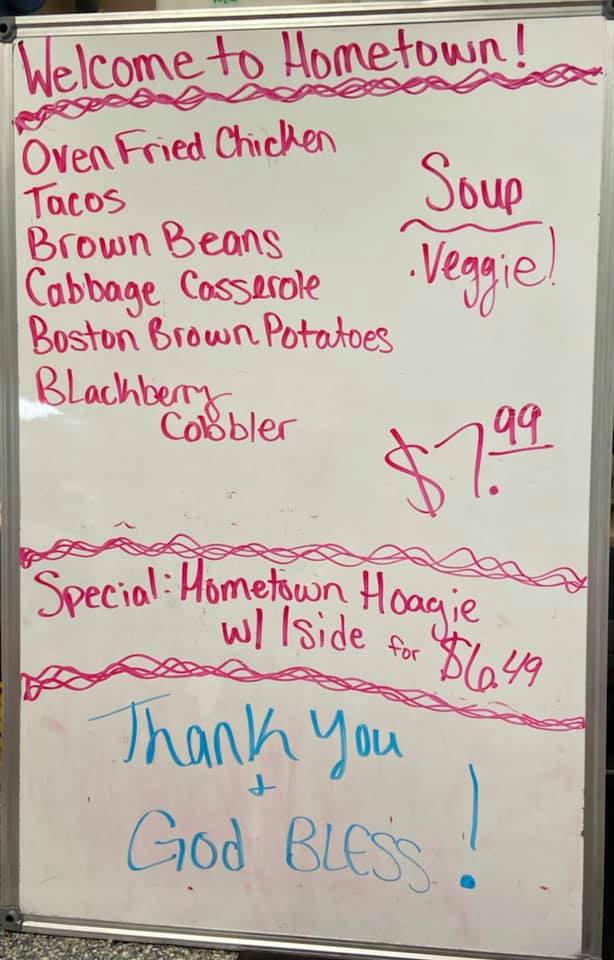 Welcome to Hometown!
Oven Fried Chicken
Tacos
Brown Beans
Cabbage Casserole
Boston Brown Potatoes
Blackberry
Cobbler
Soup
. Veggie!
$7.99
Special: Hometown Hoagie
w/ 1 side for $6.49
Thank you
+
God BLESS!